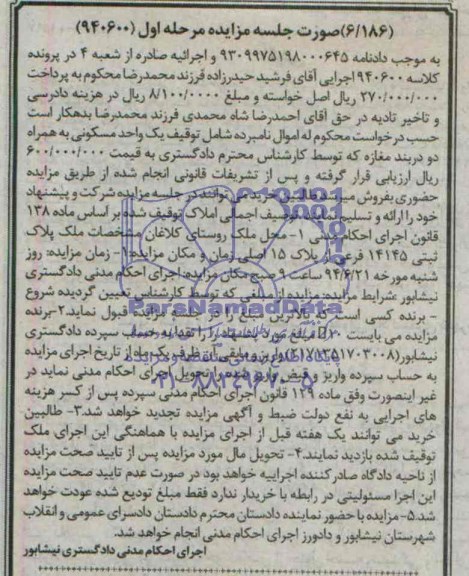 (۶/۱۸۶)صورت جلسه مزایده مرحله اول (۹۴۰۶۰۰)
به موجب دادنامه ۹۳۰۹۹۷۵۱۹۸۰۰۰۶۴۵ و اجرائیه صادره از شعبه ۴ در پرونده
کلاسه ۹۴۰۶۰۰ اجرایی آقای فرشید حیدرزاده فرزند محمدرضا محکوم به پرداخت
۲۷۰/۰۰۰/۰۰۰ ریال اصل خواسته و مبلغ ۸/۱۰۰/۰۰۰۰ ریال در هزینه دادرسی
و تاخیر تادیه در حق آقای احمدرضا شاه محمدی فرزند محمدرضا بدهکار است
حسب درخواست محکوم له اموال نامبرده شامل توقیف یک واحد مسکونی به همراه
دو دربند مغازه که توسط کارشناس محترم دادگستری به قیمت ۶۰۰/۰۰۰/۰۰۰
ریال ارزیابی قرار گرفته و پس از تشریفات قانونی انجام شده از طریق مزایده
حضوری بفروش می رسد خرید می توانند در جلسه مزایده شرکت و پیشنهاد
خود را ارائه و تسلیم توصیف اجمالی املاک توقیف شده بر اساس ماده ۱۳۸
قانون اجرای احکام مدنی ۱- محل ملک روستای کلاغان مشخصات ملک پلاک
ثبتی ۱۴۱۴۵ فرعی از پلاک ۱۵ اصلی زمان و مکان مزایده: ۱- زمان مزایده: روز
شنبه مورخه ۹۴/۶/۲۱ ساعت ۹ صبح مکان مزایده: اجرای احکام مدنی دادگستری
نیشابور شرایط مزایده: مزایده از مبلغی که توسط کارشناس تعیین گردیده شروع
- برنده کسی است که بالاترین مبلغ را قبول نماید.۲-برنده
مزایده می بایست ۱۰٪ مبلغ مورد پیشنهاد را نقدا به حساب سپرده دادگستری
نیشابور مابقی ظرف یک ماه از تاریخ اجرای مزایده
به حساب سپرده واریز و قبض واریز شده را تحویل اجرای احکام مدنی نماید در
غیر اینصورت وفق ماده ۱۲۹ قانون اجرای احکام مدنی سپرده پس از کسر هزینه
های اجرایی به نفع دولت ضبط و آگهی مزایده تجدید خواهد شد.۳- طالبین
خرید می توانند یک هفته قبل از اجرای مزایده با هماهنگی این اجرای ملک
توقیف شده بازدید نمایند.۴- تحویل مال مورد مزایده پس از تایید صحت مزایده
از ناحیه دادگاه صادر کننده اجراییه خواهد بود در صورت عدم تایید صحت مزایده
این اجرا مسئولیتی در رابطه با خریدار ندارد فقط مبلغ تودیع شده عودت خواهد
شد.۵-مزایده با حضور نماینده دادستان محترم دادستان دادسرای عمومی و انقلاب
شهرستان نیشابور و دادورز اجرای احکام مدنی انجام خواهد شد.
اجرای احکام مدنی دادگستری نیشابور
ParsNamadData
۰۲۱-۸۸۳۴۹۶۷۰-۵